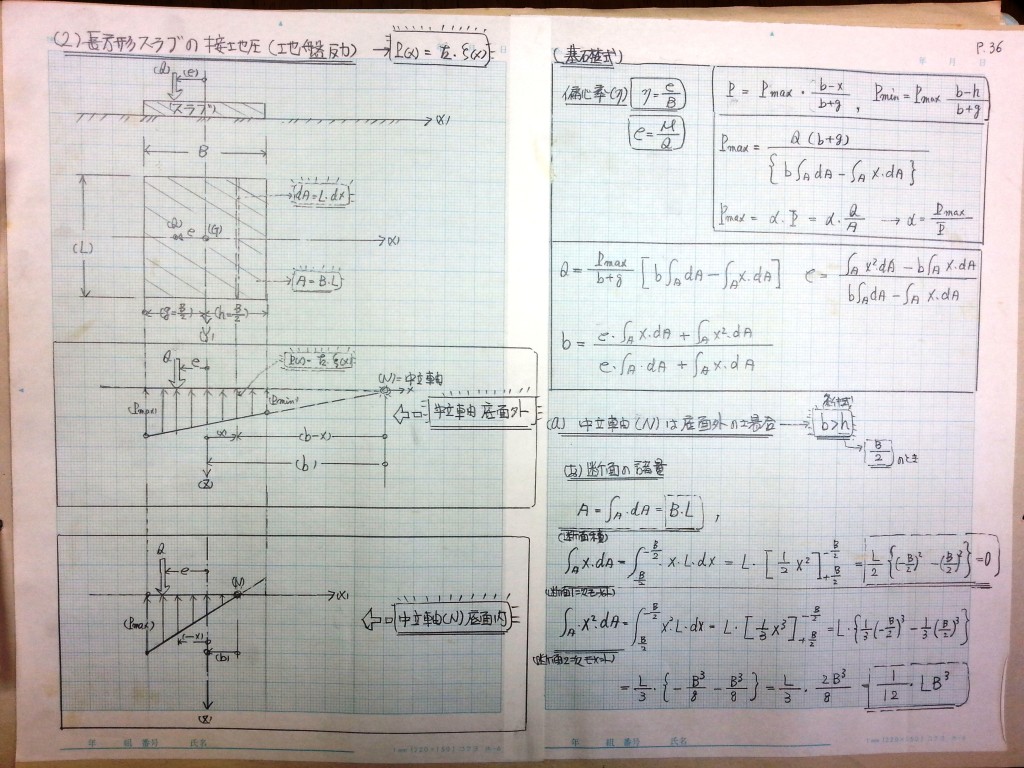 (2) 長方形スラブの接地圧(地盤反力) → P(x) = 左・ξ(x)
(Q)
(e)
スラブ
(X)
B
dA=L・dX
(L)
(Q) e (G)
(X)
A=B・L
(g=B/2) (h=B/2)
(Y)
Q
e
P(x)=左・ξ(x)
(N)=中立軸
x
(Pmax)
(Pmin)
中立軸 底面外
x
(b-x)
(b)
(Z)
Q
e
(N)
(X)
(Pmax)
中立軸(N)底面内
(-x)
(b)
(Z)
年 組 番号 氏名
P.36
年 月 日
(基礎式)
偏心率(η) η = e/B
e = M/Q
P = Pmax・(b-x)/(b+g) , Pmin = Pmax (b-h)/(b+g)
Pmax = Q(b+g)/{b∫A dA - ∫A X・dA}
Pmax = α・P = α・Q/A → α = Pmax/P
Q = Pmax/(b+g) [b∫A dA - ∫A X・dA]
e = (∫A X²・dA - b∫A X・dA)/(b∫A dA - ∫A X・dA)
b = (e・∫A X・dA + ∫A X²・dA)/(e・∫A・dA + ∫A X・dA)
(a) 中立軸(N)は底面外の場合 → b>h
B/2 のとき
断面の諸量
A = ∫A・dA = B・L ,
(断面積)
∫A X・dA = ∫ B/2 -B/2 X・L・dX = L・[1/2 X²] -B/2 +B/2 = L/2 {(-B/2)² - (B/2)²} = 0
∫A X²・dA = ∫ B/2 -B/2 X²・L・dX = L・[1/3 X³] -B/2 +B/2 = L・{1/3(-B/2)³ - 1/3(B/2)³}
= L/3・{-B³/8 - B³/8} = L/3・2B³/8 = 1/12・LB³
年 組 番号 氏名